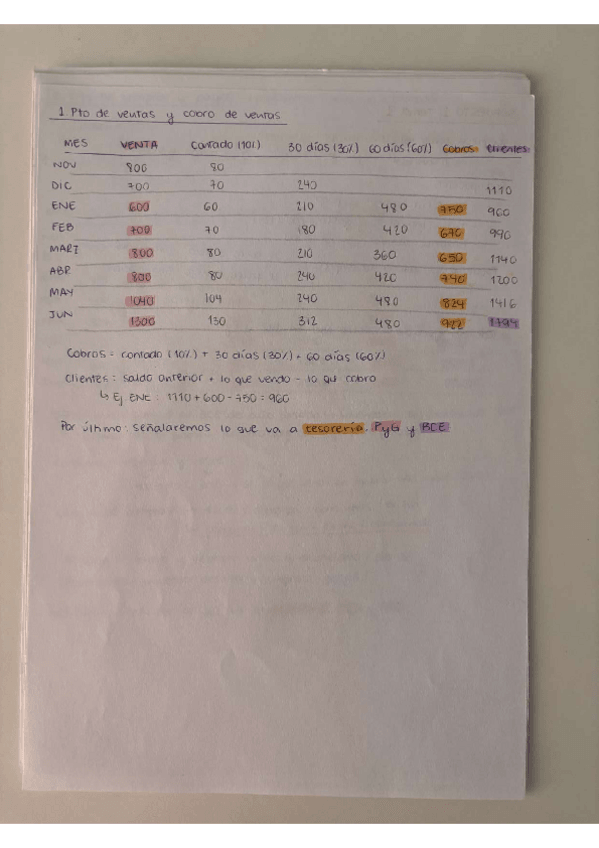 1 Pto de ventas y cobro de ventas
MES VENTA Contado (10%) 30 días (30%) 60 días (60%) Cobros Clientes
NOV 800 80
DIC 700 70 240 1110
ENE 600 60 210 480 750 960
FEB 700 70 180 420 670 990
MARZ 800 80 210 360 650 1140
ABR 800 80 240 420 740 1200
MAY 1040 104 240 480 824 1416
JUN 1300 130 312 480 922 1794
Cobros = contado (10%) + 30 días (30%) + 60 días (60%)
Clientes : saldo anterior + lo que vendo - lo que cobro
↳ Ej ENE : 1110 + 600 - 750 = 960
Por último : señalaremos lo que va a tesorería, PyG y BCE